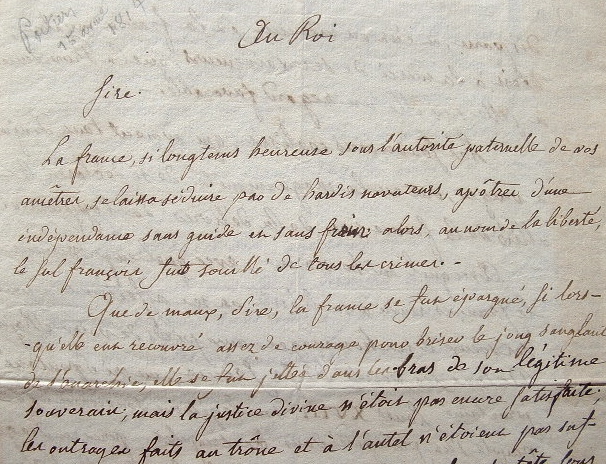 Poitiers
15 avril 1814
Au Roi
Sire.
La france, si longtems heureuse sous l'autorité paternelle de vos
ancêtres, se laissa séduire par de hardis novateurs, apôtres d'une
indépendance sans guide et sans frein; alors, au nom de la liberté,
le sol françois fut souillé de tous les crimes. -
Que de maux, Sire, la france se fut épargné, si lors-
-qu'elle eut recouvré assez de courage pour briser le joug sanglant
de l'anarchie, elle se fut jettée dans les bras de son légitime
souverain; mais la justice divine n'étoit pas encore satisfaite;
les outrages faits au trône et à l'autel n'étoient pas suf-